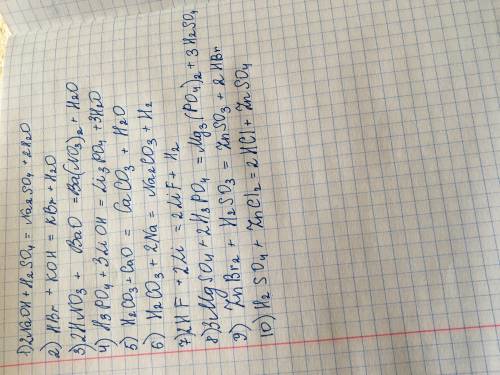 1) 2NaOH + H2SO4 = Na2SO4 + 2H2O
2) HBr + KOH = KBr + H2O
3) 2HNO3 + BaO = Ba(NO3)2 + H2O
4) H3PO4 + 3LiOH = Li3PO4 + 3H2O
5) H2CO3 + CaO = CaCO3 + H2O
6) H2CO3 + 2Na = Na2CO3 + H2
7) 2HF + 2Li = 2LiF + H2
8) 3MgSO4 + 2H3PO4 = Mg3(PO4)2 + 3H2SO4
9) ZnBr2 + H2SO3 = ZnSO3 + 2HBr
10) H2SO4 + ZnCl2 = 2HCl + ZnSO4